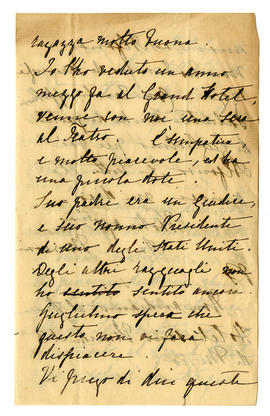 ragazza molto buona.
Io l'ho veduta un anno
mezzo fa al Grand Hotel,
venne con noi una sera
al teatro. E' simpatica,
e molto piacevole, ed ha
una piccola dote.
Suo padre era un Giudice,
e suo nonno Presidente
di uno degli State Uniti.
Degli altri ragguagli non
ho sentito sentito ancora.
Guglielmo spera che
questo non vi farà
dispiacere.
Vi prego di dire queste